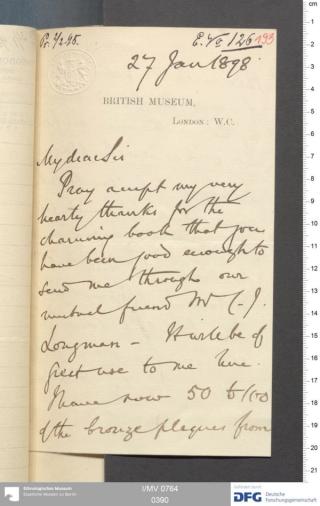 Pr. 1/2.98.
E. No 126
193
27 Jan 1898.
BRITISH MUSEUM,
LONDON: W.C.
My dear Sir
Pray accept my very
hearty thanks for the
charming book that you
have been good enough to
send me through our
mutual friend Mr C. J.
Longman – It will be of
great use to me here.
I have now 50 to 100
of the bronze plaques from
cm
1
2
3
4
5
6
7
8
9
10
11
12
13
14
15
16
17
18
19
20
21
Ethnologisches Museum
Staatliche Museen zu Berlin
I/MV 0764
0390
Gefördert durch
DFG Deutsche
Forschungsgemeinschaft